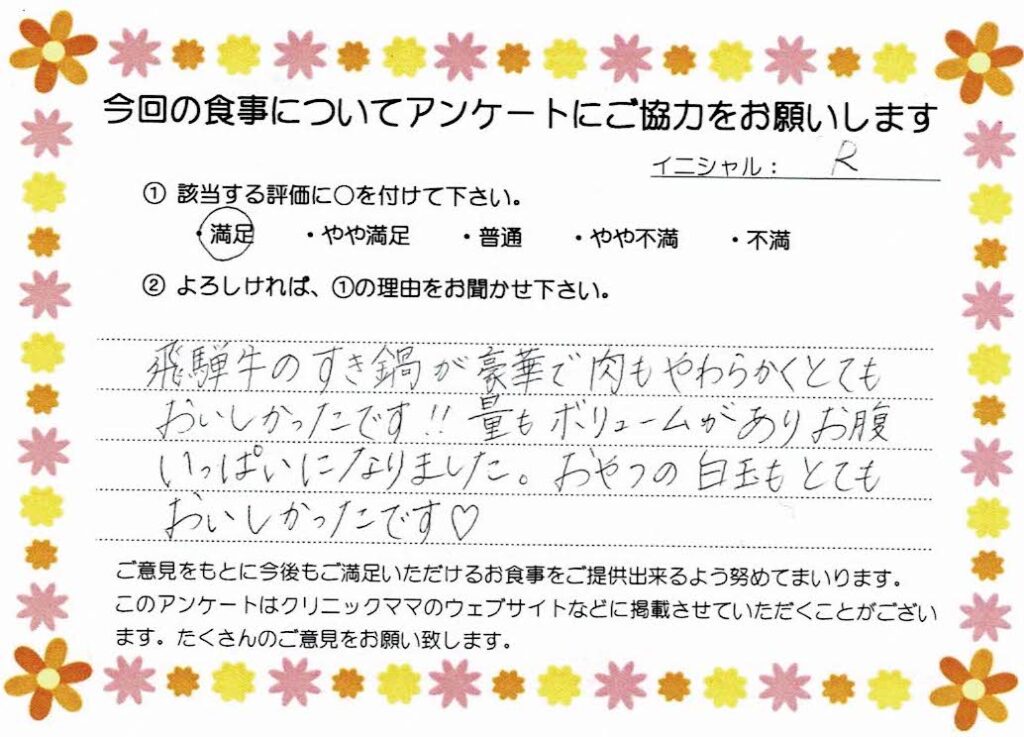 今回の食事についてアンケートにご協力をお願いします
イニシャル： R
① 該当する評価に○を付けて下さい。
・満足 ・やや満足 ・普通 ・やや不満 ・不満
② よろしければ、①の理由をお聞かせ下さい。
飛騨牛のすき鍋が豪華で肉もやわらかくとても
おいしかったです!! 量もボリュームがありお腹
いっぱいになりました。おやつの白玉もとても
おいしかったです♡
ご意見をもとに今後もご満足いただけるお食事をご提供出来るよう努めてまいります。
このアンケートはクリニックママのウェブサイトなどに掲載させていただくことがござい
ます。たくさんのご意見をお願い致します。